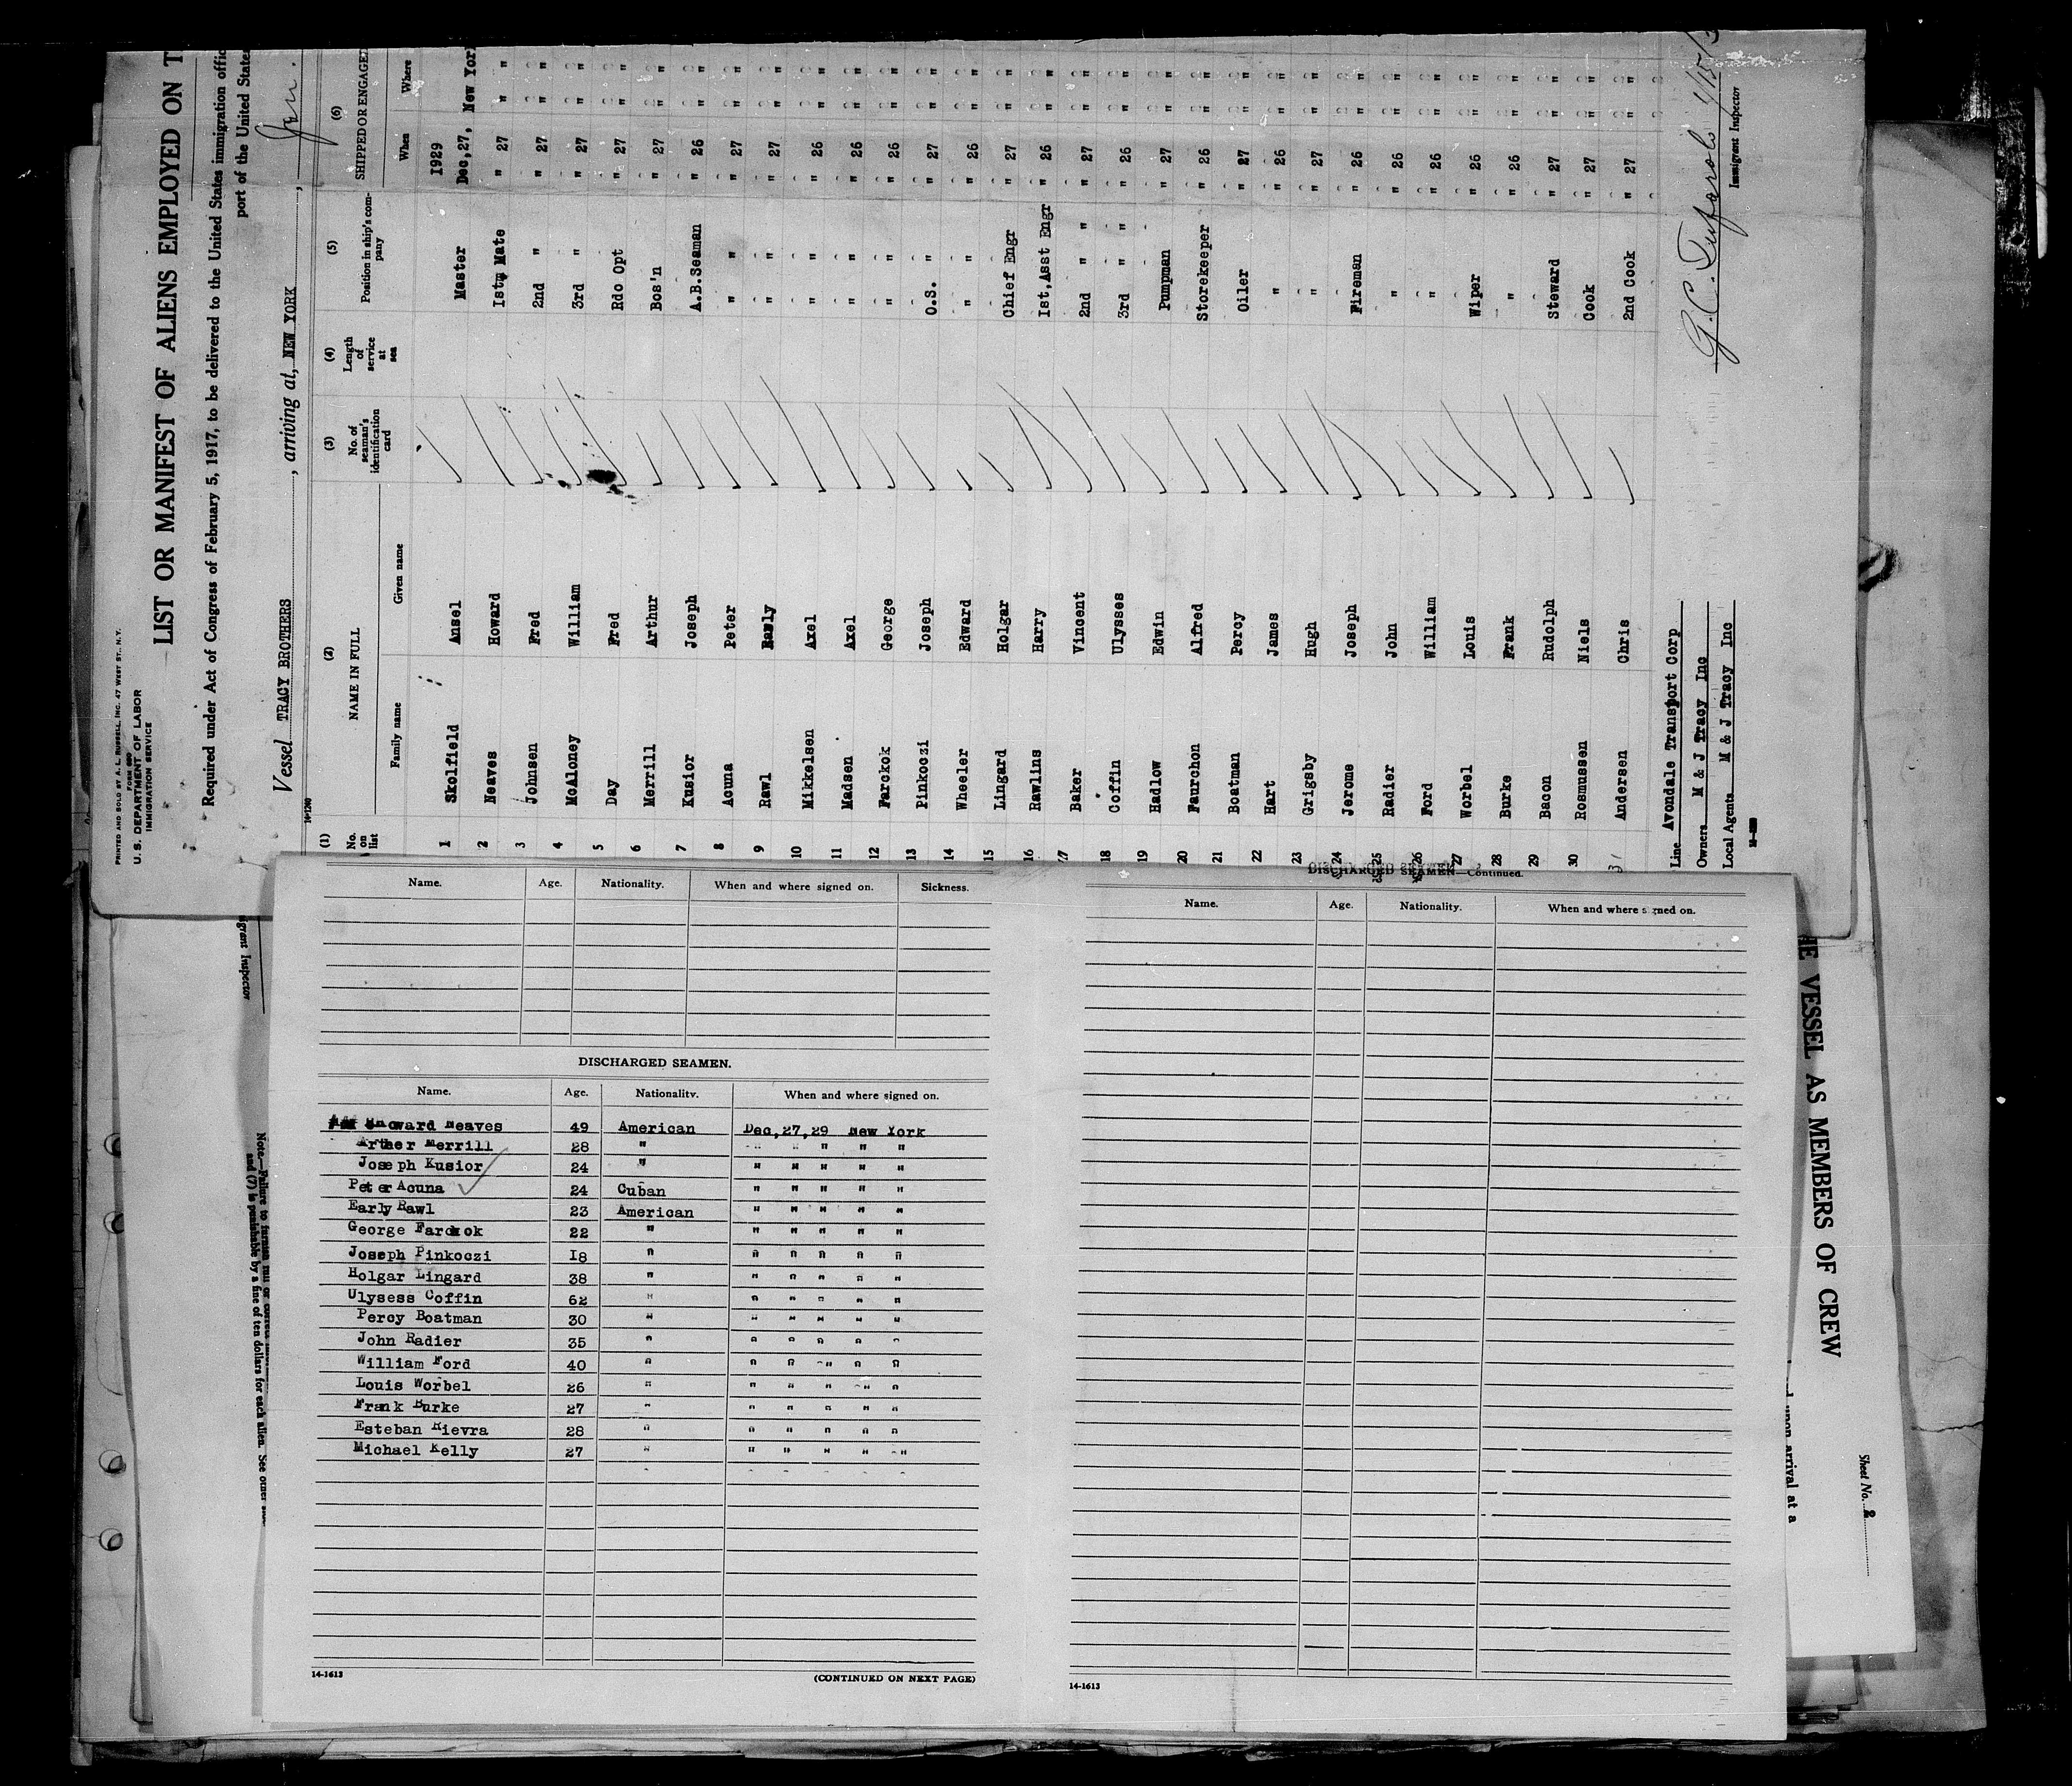 PRINTED AND SOLD BY A. L. RUSSELL, INC. 47 WEST ST., N.Y.
FORM 680
U. S. DEPARTMENT OF LABOR
IMMIGRATION SERVICE
LIST OR MANIFEST OF ALIENS EMPLOYED ON T
Required under Act of Congress of February 5, 1917, to be delivered to the United States immigration offic
port of the United State
Vessel TRACY BROTHERS, arriving at, NEW YORK, Jan.
14-1240
(1) (2) (3) (4) (5) (6)
No. on list NAME IN FULL No. of seaman's identification card Length of service at sea Position in ship's company SHIPPED OR ENGAGED
Family name Given name When Where
1929
1 Skolfield Ansel Master Dec,27, New Yor
2 Neaves Howard Ist Mate " 27 " "
3 Johnsen Fred 2nd " " 27 " "
4 McAloney William 3rd " " 27 " "
5 Day Fred Rdo Opt " 27 " "
6 Merrill Arthur Bos'n " 27 " "
7 Kusior Joseph A.B.Seaman " 26 " "
8 Acuna Peter " " " 27 " "
9 Rawl Rawly " " " 27 " "
10 Mikkelsen Axel " " " 26 " "
11 Madsen Axel " " " 26 " "
12 Farckok George " " " 26 " "
13 Pinkoczi Joseph O.S. " " 27 " "
14 Wheeler Edward " " " 26 " "
15 Lingard Holgar Chief Engr " 27 " "
16 Rawlins Harry Ist,Asst Engr " 26 " "
17 Baker Vincent 2nd " " " 27 " "
18 Coffin Ulysses 3rd " " " 26 " "
19 Hadlow Edwin Pumpman " 27 " "
20 Faurchon Alfred Storekeeper " 26 " "
21 Boatman Percy Oiler " 27 " "
22 Hart James " " 26 " "
23 Grigsby Hugh " " 27 " "
24 Jerome Joseph Fireman " 26 " "
25 Radier John " " 26 " "
26 Ford William " " 26 " "
27 Worbel Louis Wiper " 26 " "
28 Burke Frank " " 26 " "
29 Bacon Rudolph Steward " 27 " "
30 Rosmussen Niels Cook " 27 " "
31 Andersen Chris 2nd Cook " 27 " "
Line Avondale Transport Corp
Owners M & J Tracy Inc
Local Agents M & J Tracy Inc
G. C.
Immigrant Inspector
Name. Age. Nationality. When and where signed on. Sickness.
DISCHARGED SEAMEN.
Name. Age. Nationality. When and where signed on.
Howard Neaves 49 American Dec,27,29 New York
Arther Merrill 28 " " " " " "
Joseph Kusior 24 " " " " " "
Peter Acuna 24 Cuban " " " " "
Early Rawl 23 American " " " " "
George Farckok 22 " " " " " "
Joseph Pinkoczi I8 " " " " " "
Holgar Lingard 38 " " " " " "
Ulysess Coffin 62 " " " " " "
Percy Boatman 30 " " " " " "
John Radier 35 " " " " " "
William Ford 40 " " " " " "
Louis Worbel 26 " " " " " "
Frank Burke 27 " " " " " "
Esteban Rievra 28 " " " " " "
Michael Kelly 27 " " " " " "
14-1613
(CONTINUED ON NEXT PAGE)
DISCHARGED SEAMEN—Continued.
Name. Age. Nationality. When and where signed on.
14-1613
grant Inspector
Note.—Failure to furnish
and (7) is punishable by a fine of ten dollars for each alien. See other
HE VESSEL AS MEMBERS OF CREW
upon arrival at a
Sheet No. 2